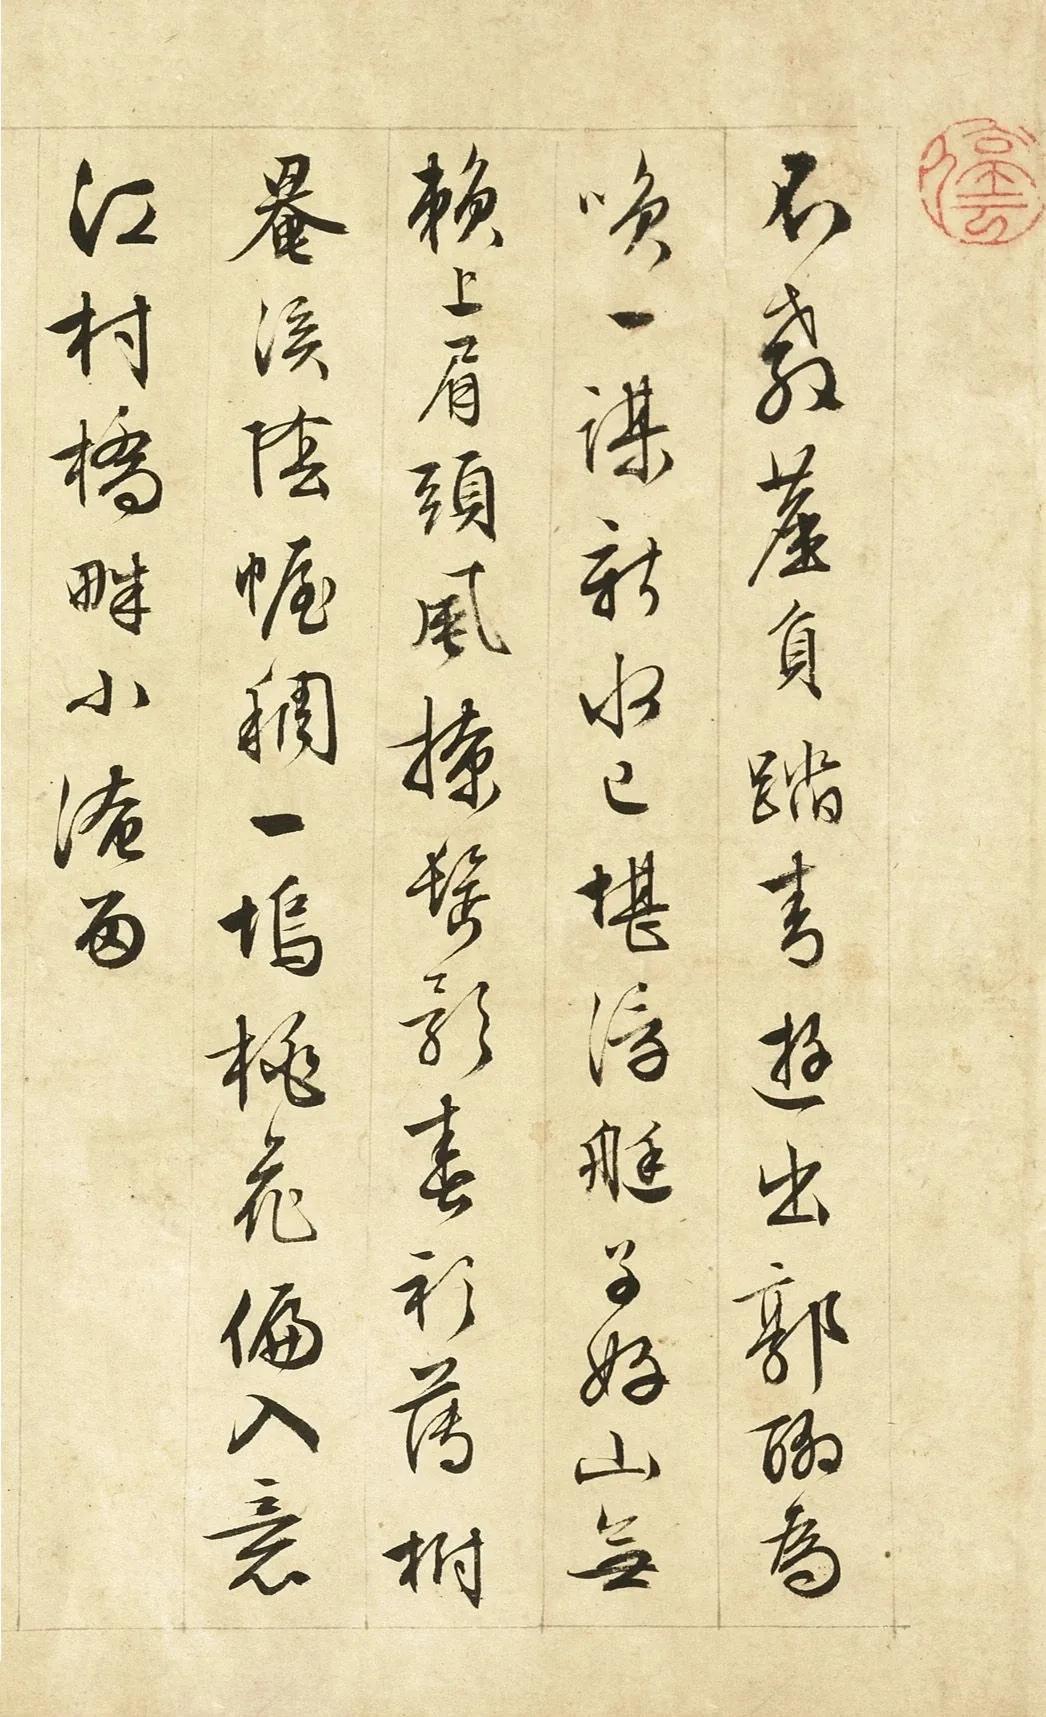 不教塵負踏青遊出郭聊為
喚一謀新水已堪浮艇子好山無
賴上眉頭風撩鬢影春衫薄樹
罨溪陰幄稠一塢桃花偏入意
江村橋畔小淹留